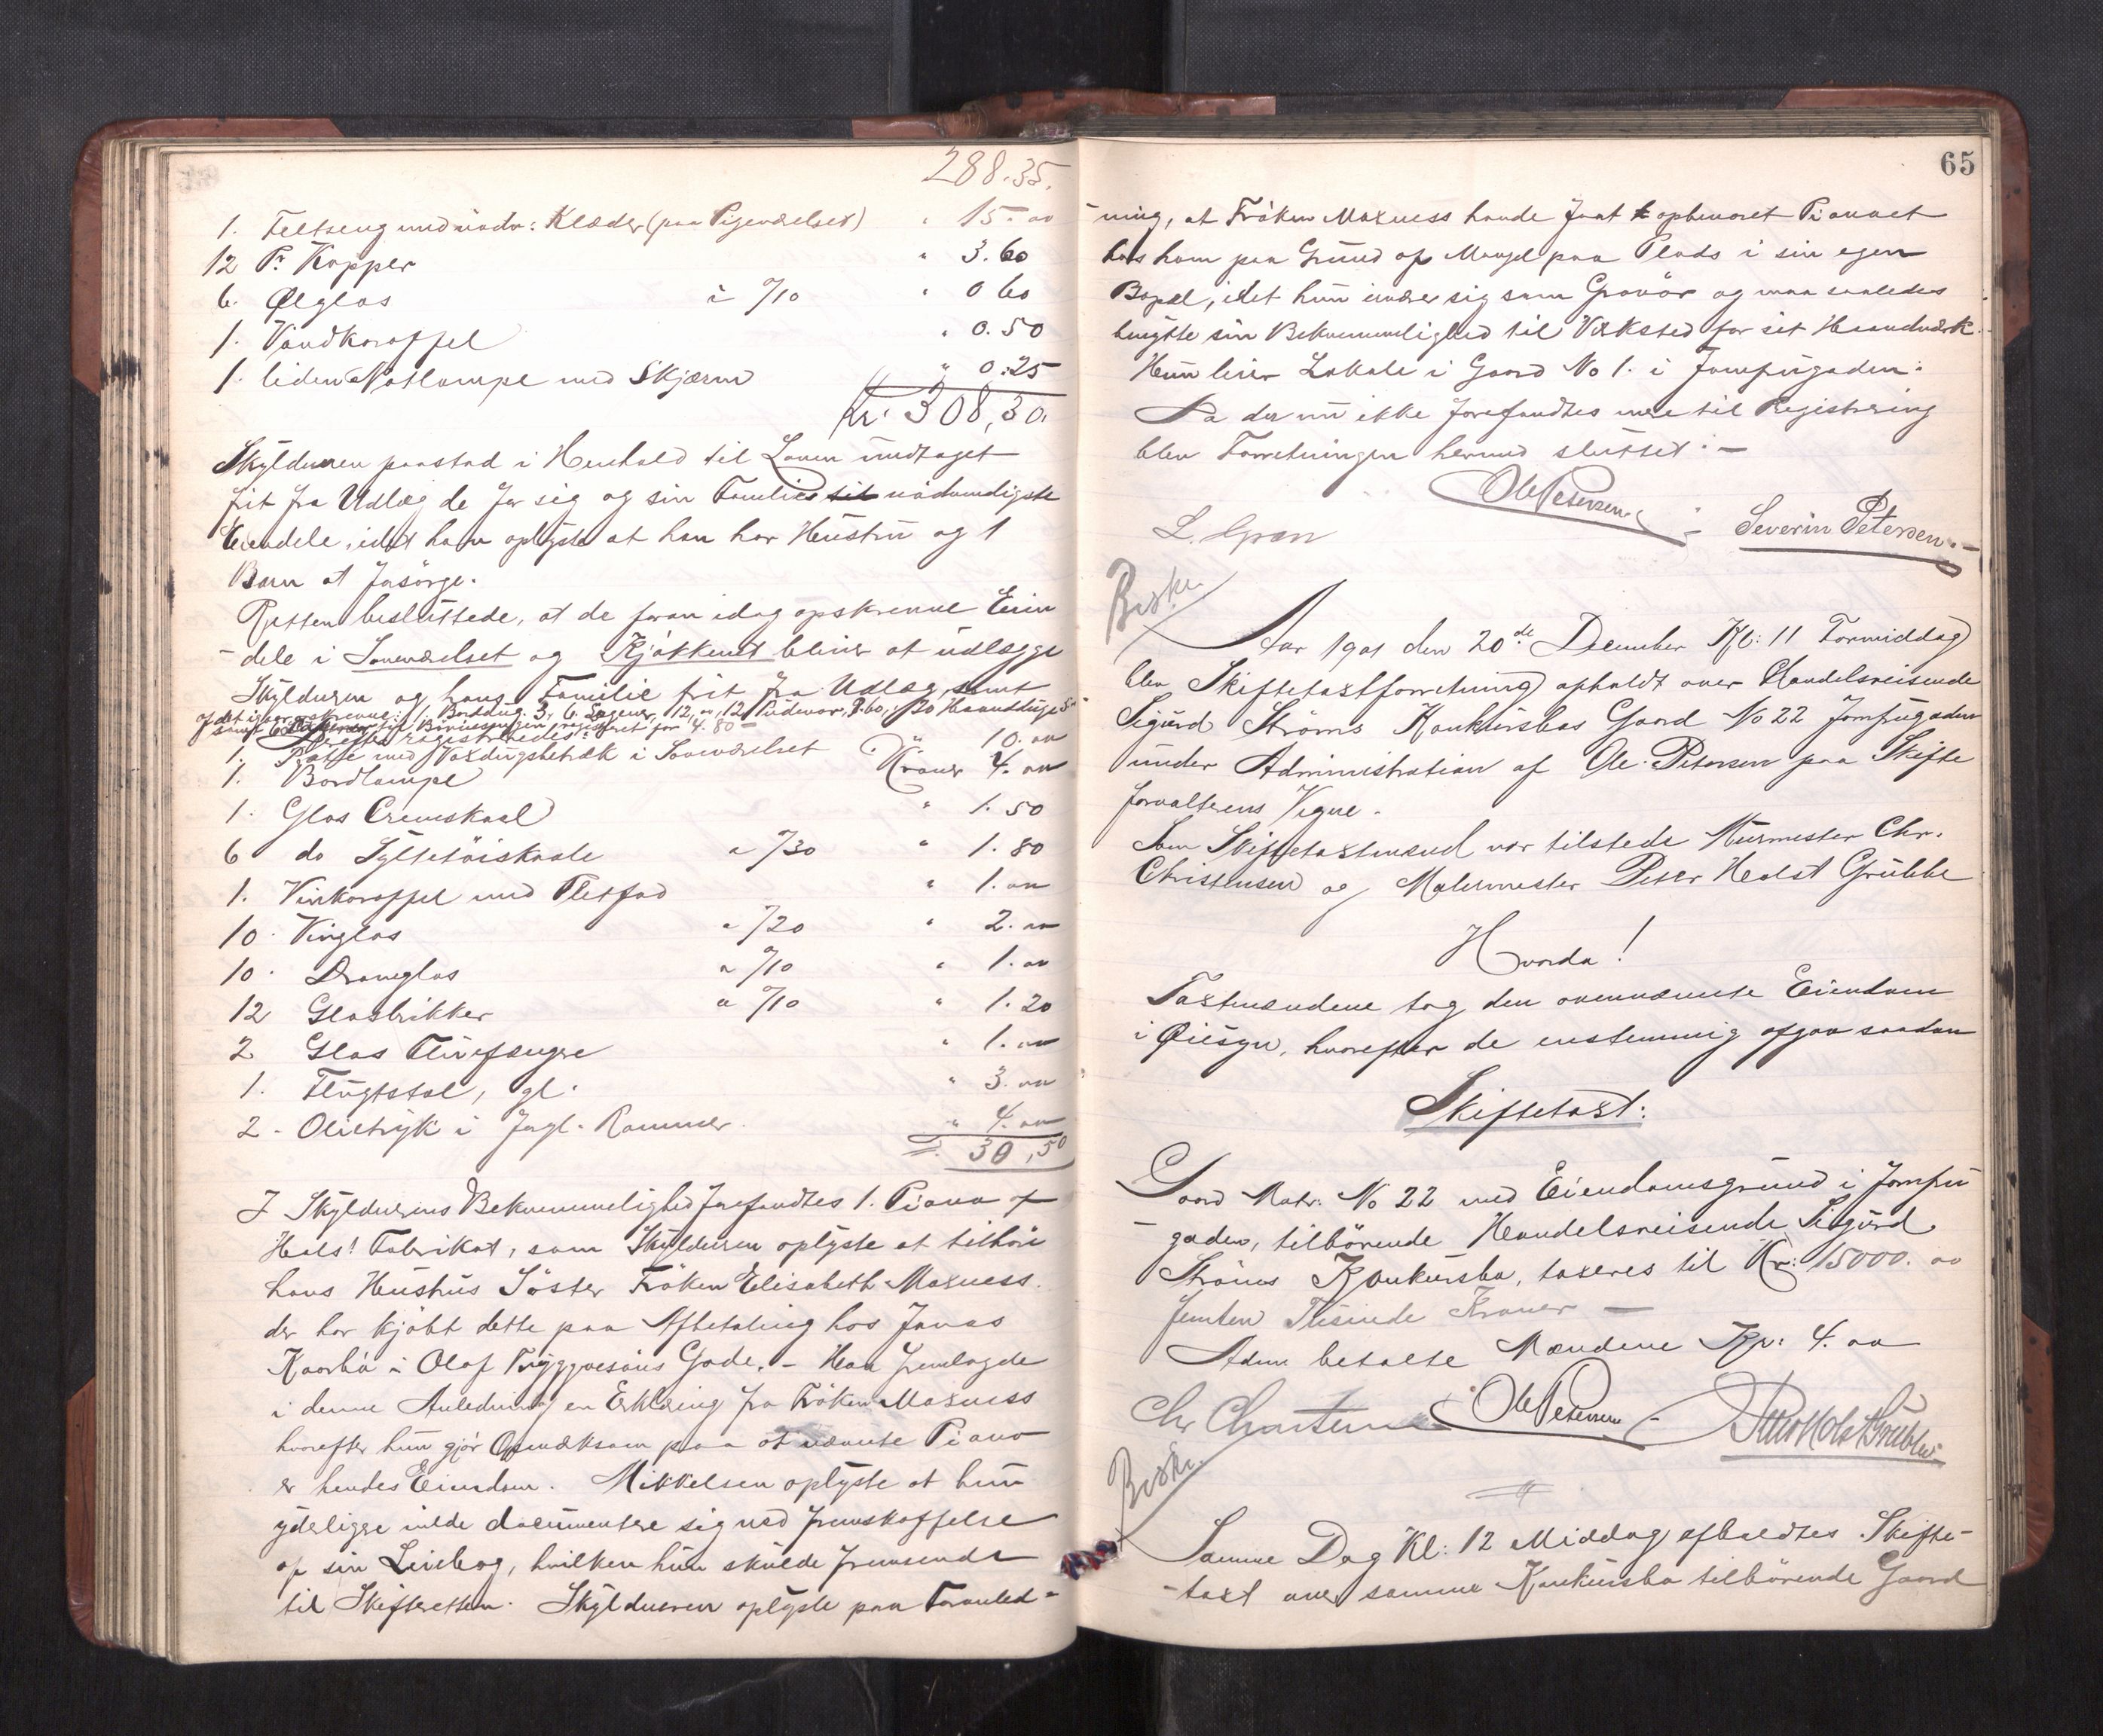 288.35.
1. Feltseng med nødv: Klæder (paa Pigeværelset) " 15.00
12 Pr Kopper " 3.60
6. Ølglas à %10 " 0 60
1. Vandkaraffel " 0.50
1. liden Natlampe med Skjærm " 0.25
Kr: 308,30.
Skylduren paastod i Henhold til Loven undtaget
frit fra Udlæg de for sig og sin Familie til nødvendigste
Eiendele, idet han oplyste at han har Hustru og 1
Barn at forsørge.
Retten besluttede, at de foran idag opskrevne Eien
-dele i Soveværelset og Kjøkkenet bliver at udlægge
Skylduren og hans Familie frit fra Udlæg, samt
af det igaar opskrevne: 1. Borddug 3, 6 Lagener, 12, 12 Pudevar, 3.60, 20 Haandduge 5
samt for 4.80
Derefter registreredes:
1. med Voxdugsbetræk i Soveværelset " 10.00
1. Bordlampe Kroner 4.00
1. Glas Cremskaal " 1.50
6 do Syltetøiskaale a %30 " 1.80
1. Vinkaraffel med Pletfad " 1.00
10. Vinglas a %20 " 2.00
10. Dramglas a %10 " 1.00
12 Glasbrikker a %10 " 1.20
2 Glas Fluefangere " 1.00
1. Flugtstol, gl. " 3.00
2 - Olietryk i forgl. Rammer. " 4.00
= 30,50
I Skyldnerens Bekvemmelighed forefandtes 1. Piano af
Hals! Fabrikat, som Skylduren oplyste at tilhøre
hans Hustrus Søster Frøken Elisabeth Maxness.
der har kjøbt dette paa Afbetaling hos Jonas
Kaarbø i Olaf Tryggvesøns Gade. - Han fremlagde
i denne Anledning en Erklæring fra Frøken Maxness
hvorefter hun gjør Opmærksom paa at nævnte Piano
er hendes Eiendom. Mikkelsen oplyste at hun
yderligere vilde documentere sig ved fremskaffelse
af sin Leiebog, hvilken hun skulde fremsende
til Skifteretten. Skylduren oplyste paa Foranled-
65
-ning, at Frøken Maxness havde faat opbevaret Pianoet
hos ham paa Grund af Mangel paa Plads i sin egen
Bopæl, idet hun ernærer sig som Gravør og maa saaledes
benytte sin Bekvemmelighed til Værksted for sit Haandværk.
Hun leier Lokale i Gaard No 1. i Jomfrugaden.
Da der nu ikke forefandtes mere til Registrering
blev Forretningen hermed sluttet. -
Ole Petersen
L. Gran - Severin Petersen. -
Beskr.
Aar 1901 den 20de December Kl: 11 Formiddag
blev Skiftetaxtforretning afholdt over Handelsreisende
Sigurd Strøms Konkursbos Gaard No 22 Jomfrugaden
under Administration af Ole Petersen paa Skifte
forvalterens Vegne.
Som Skiftetaxtmænd var tilstede Murmester Chr.
Christensen og Malermester Peter Holst Grubbe
Hvorda!
Taxtmændene tog den ovennævnte Eiendom
i Øiesyn, hvorefter de enstemmig afgav saadan
Skiftetaxt:
Gaard Matr. No 22 med Eiendomsgrund i Jomfru
-gaden, tilhørende Handelsreisende Sigurd
Strøms Konkursbo, taxeres til Kr: 15000.00
femten Tusinde Kroner —
Adm betalte Mændene Kr: 4.00
Chr Christensen Ole Petersen - Peter Holst Grubbe
Beskr.
Samme Dag Kl: 12 Middag afholdtes Skifte-
-taxt over samme Konkursbo tilhørende Gaard